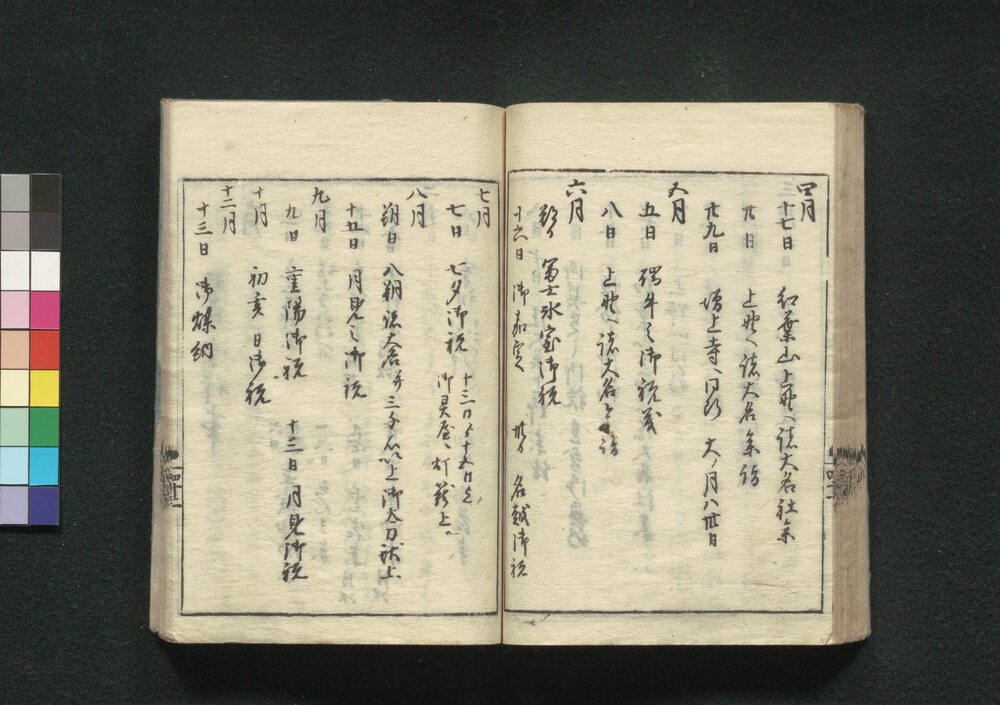 四月
十七日 紅葉山上野へ諸大名社参
廿日 上野へ諸大名参詣
廿九日 増上寺へ同断 大ノ月ハ卅日
五月
五日 端午之御祝義
八日 上野へ諸大名参詣
六月
朔日 冨士氷室御祝
十六日 御嘉定 卅日 名越御祝
七月
七日 七夕御祝 十三日ゟ十五日迄
御霊屋へ灯籠上ル
八月
朔日 八朔諸大名并三千石以上御太刀献上
十五日 月見之御祝
九月
九日 重陽御祝 十三日月見御祝
十月
初亥ノ日御祝
十二月
十三日 御煤納